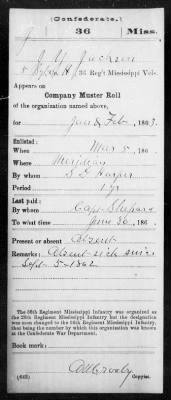 (Confederate.)
J | 36 | Miss.
J. Y. Jackson
, Co. H, 36 Reg't Mississippi Vols.
Appears on
Company Muster Roll
of the organization named above,
for Jan & Feb, 1863.
Enlisted:
When Mar 5, 186
Where Meridian
By whom S. G. Harper
Period 1 yr
Last paid:
By whom Capt. Shepard
To what time June 30, 186
Present or absent Absent
Remarks: Absent sick since
Sept. 5-1862
The 36th Regiment Mississippi Infantry was organized as
the 25th Regiment Mississippi Infantry but the designation
was soon changed to the 36th Regiment Mississippi Infantry,
that being the number by which this organization was known
at the Confederate War Department.
Book mark:
(642)
Crosby
Copyist.